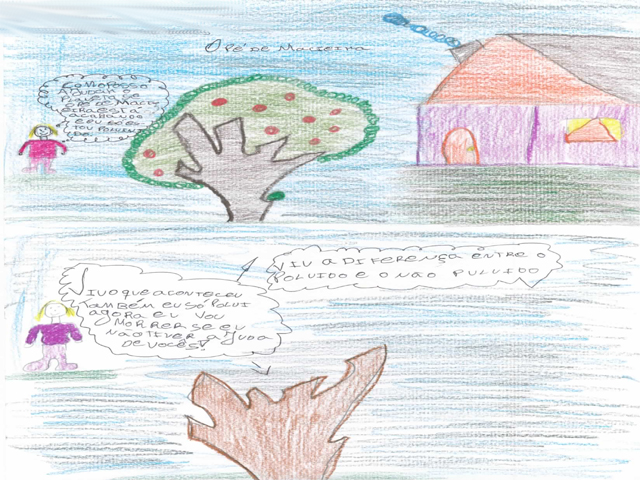 O PÉ DE MACIEIRA
COMO POSSO
AJUDAR O
PLANETA SE
O PÉ DE MACI
EIRA ESTÁ
ACABANDO
E EU SÓ ES
TOU
VIU A DIFERENÇA ENTRE O
POLUIDO E O NÃO PULUIDO
VIU O QUE ACONTECEU
TAMBÉM EU SÓ POLUI
AGORA EU VOU
MORRER SE EU
NÃO TIVER AJUDA
DE VOCÊS!